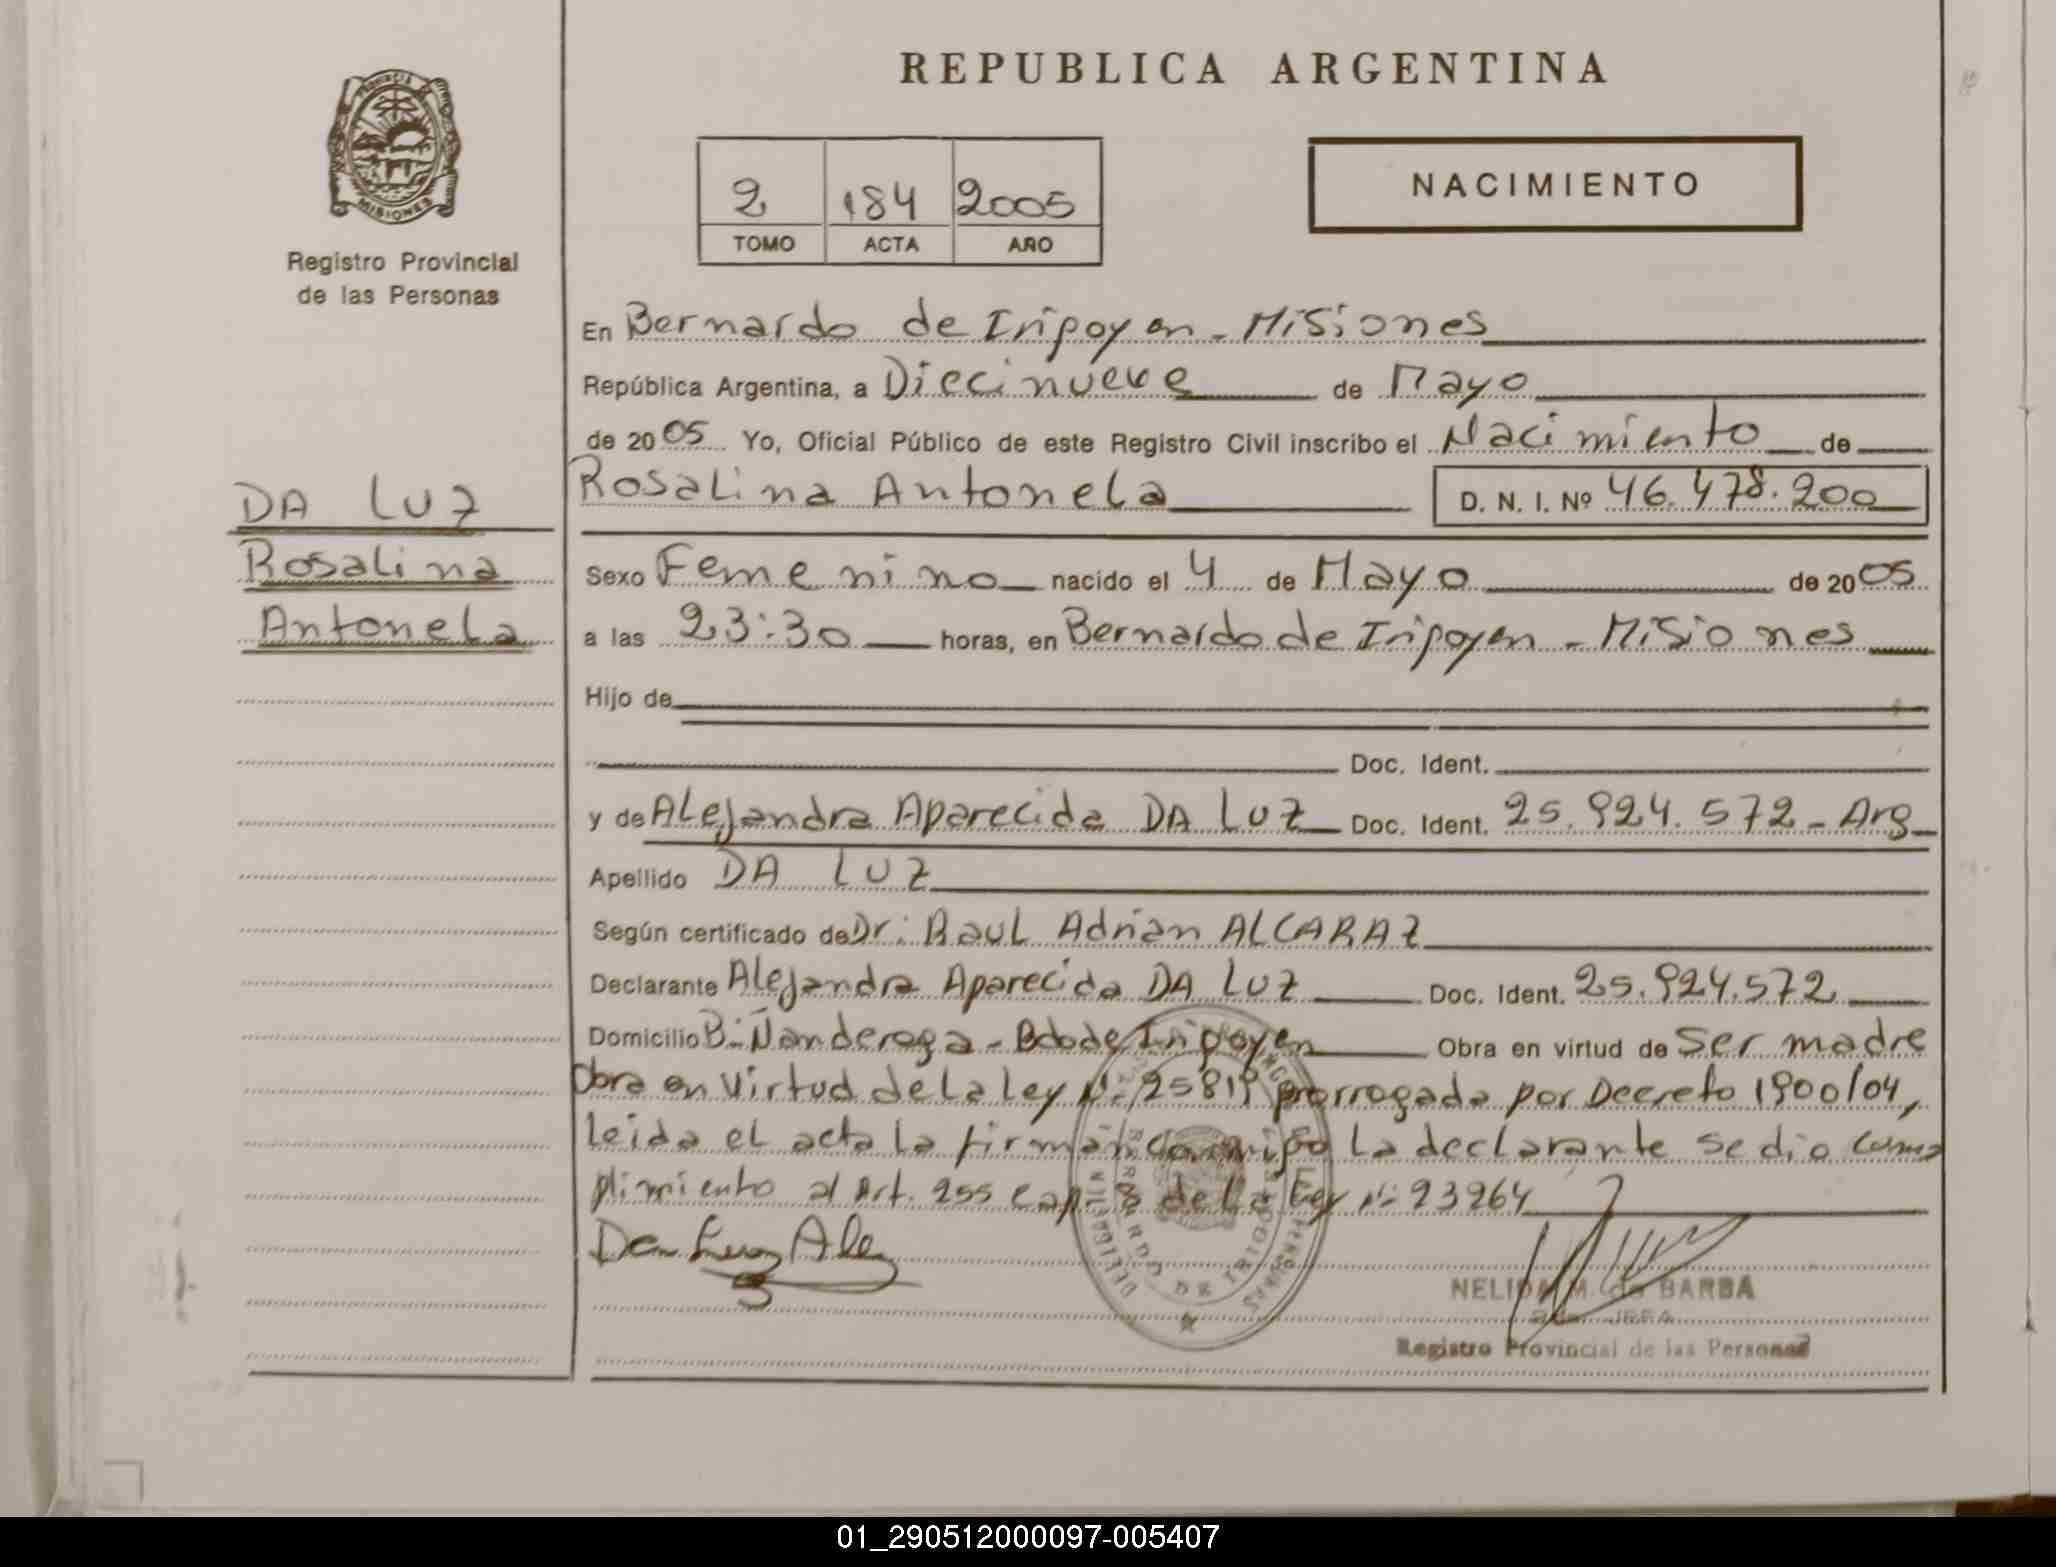 REPUBLICA ARGENTINA
PROVINCIA DE
MISIONES
Registro Provincial
de las Personas
2 184 2005
TOMO ACTA AÑO
NACIMIENTO
En Bernardo de Irigoyen - Misiones
República Argentina, a Diecinueve de Mayo
de 2005 Yo, Oficial Público de este Registro Civil inscribo el Nacimiento de
DA LUZ
Rosalina
Antonela
Rosalina Antonela D. N. I. Nº 46.478.200
Sexo Femenino nacido el 4 de Mayo de 2005
a las 23:30 horas, en Bernardo de Irigoyen - Misiones
Hijo de
Doc. Ident.
y de Alejandra Aparecida DA LUZ Doc. Ident. 25.924.572 - Arg
Apellido DA LUZ
Según certificado de Dr: Raul Adrian ALCARAZ
Declarante Alejandra Aparecida DA LUZ Doc. Ident. 25.924.572
Domicilio B: Ñanderoga - Bdo de Irigoyen Obra en virtud de ser madre
Obra en Virtud de La Ley Nº 25819 prorrogada por Decreto 1900/04,
Leida el acta La firma conmigo La declarante se dio cum
plimiento al Art. 255 Cap de La Ley Nº 23264
Da Luz Ale
NELIDA M. de BARBA
JEFA
Registro Provincial de las Personas
01_290512000097-005407